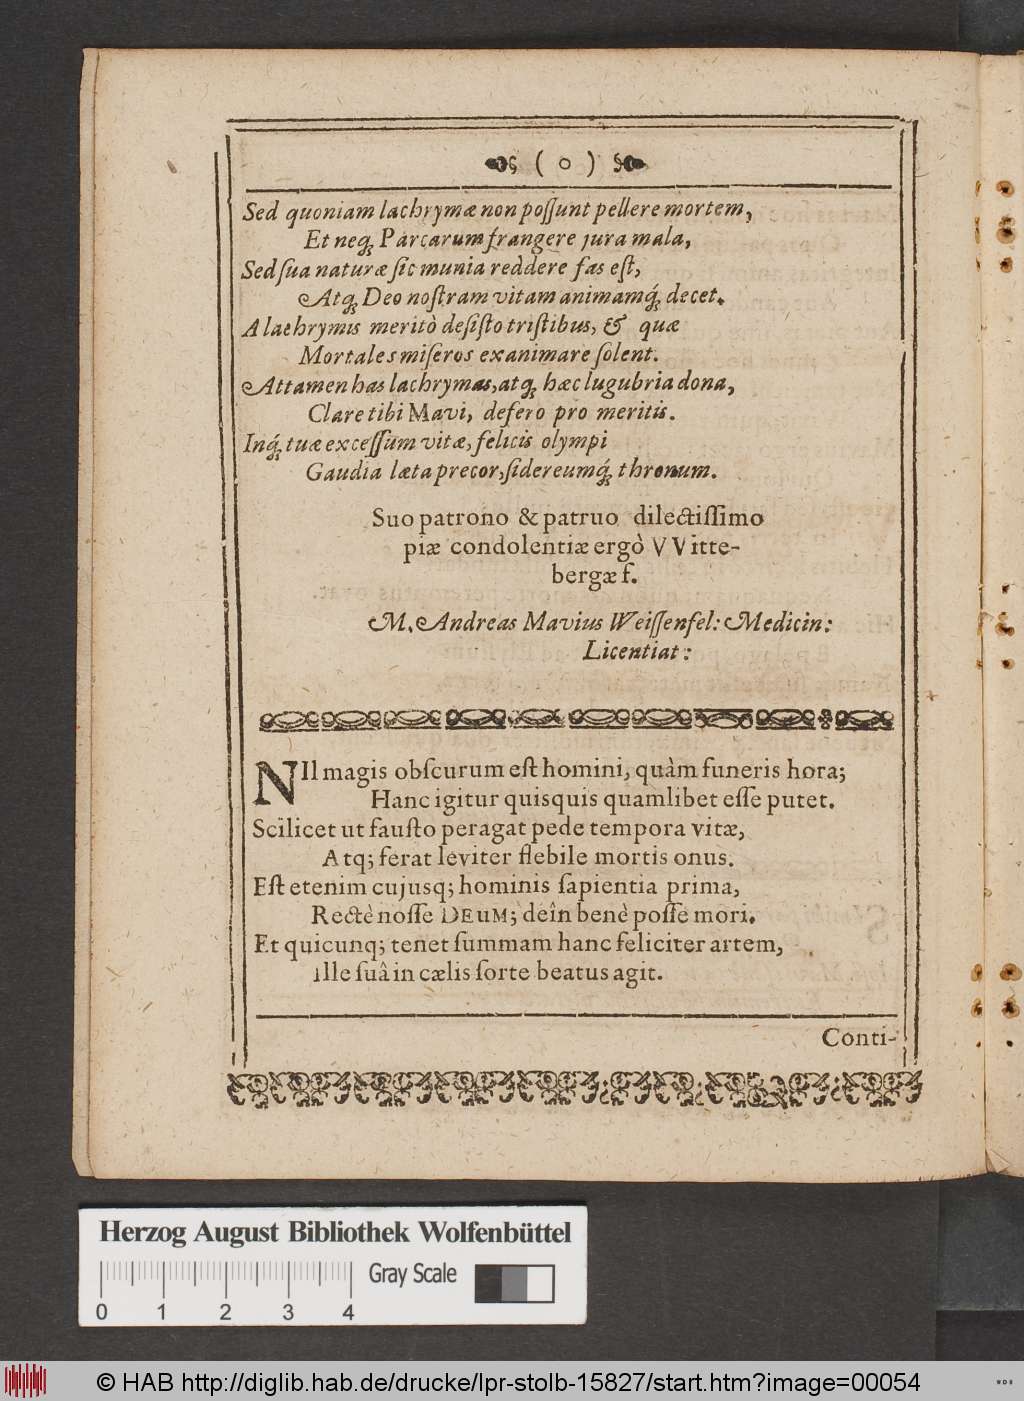 ( o )
Sed quoniam lachrymæ non poſſunt pellere mortem,
Et neq; Parcarum frangere jura mala,
Sed ſua naturæ ſic munia reddere fas eſt,
Atq; Deo noſtram vitam animamq́; decet.
A lachrymis meritò deſiſto triſtibus, & quæ
Mortales miſeros exanimare ſolent.
Attamen has lachrymas, atq; hæc lugubria dona,
Clare tibi Mavi, defero pro meritis.
Inq́; tuæ exceſſum vitæ, felicis olympi
Gaudia læta precor, ſidereumq́; thronum.
Suo patrono & patruo dilectiſſimo
piæ condolentiæ ergò VVitte-
bergæ f.
M. Andreas Mavius Weiſſenfel: Medicin:
Licentiat:
NIl magis obſcurum eſt homini, quàm funeris hora;
Hanc igitur quisquis quamlibet eſſe putet.
Scilicet ut fauſto peragat pede tempora vitæ,
Atq; ferat leviter flebile mortis onus.
Eſt etenim cujusq; hominis ſapientia prima,
Rectè noſſe DEuM; deîn benè poſſe mori.
Et quicunq; tenet ſummam hanc feliciter artem,
Ille ſuâ in cælis ſorte beatus agit.
Conti-
Herzog August Bibliothek Wolfenbüttel
Gray Scale
0 1 2 3 4
© HAB http://diglib.hab.de/drucke/lpr-stolb-15827/start.htm?image=00054